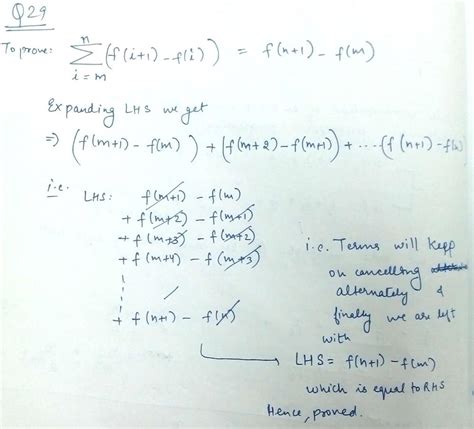 Q29
To prove: n Σ i=m (f(i+1) - f(i)) = f(n+1) - f(m)
Expanding LHS we get
⇒ (f(m+1) - f(m)) + (f(m+2) - f(m+1)) + ... (f(n+1) - f(n)
i.e. LHS: f(m+1) - f(m)
+ f(m+2) - f(m+1)
+ f(m+3) - f(m+2)
+ f(m+4) - f(m+3)
+ f(n+1) - f(n)
i.e. Terms will kepp
on cancelling
alternately &
finally we are left
with
LHS = f(n+1) - f(m)
which is equal to RHS
Hence, proved.